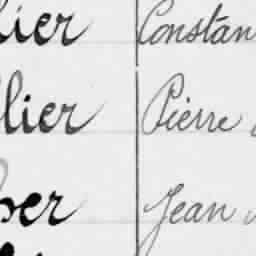 lier Constan
llier Pierre
er Jean